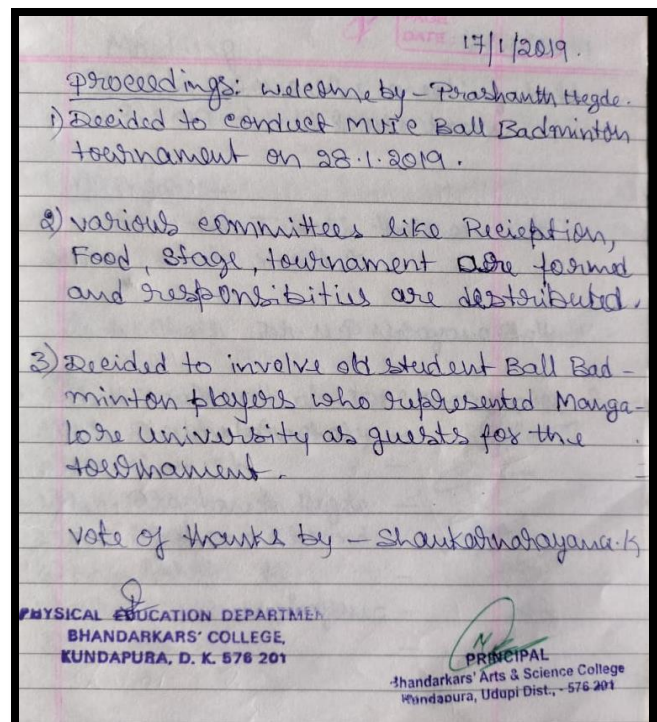 DATE: 17/1/2019.
Proceedings: welcome by - Prashanth Hegde.
1) Decided to conduct MUIC Ball Badminton
tournament on 28.1.2019.
2) various committees like Recieption,
Food, stage, tournament are formed
and responsibities are destributed.
3) Decided to involve old student Ball Bad-
minton players who represented Manga-
lore University as guests for the
tournament.
vote of thanks by - Shankarnarayana.K
PHYSICAL EDUCATION DEPARTMEN
BHANDARKARS' COLLEGE,
KUNDAPURA, D. K. 576 201
PRINCIPAL
Bhandarkars' Arts & Science College
Kundapura, Udupi Dist., - 576 201